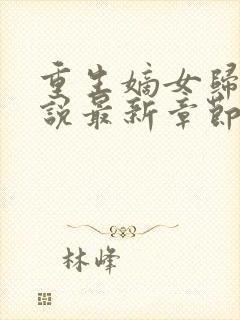 重生嫡女歸
說最新章節
林峰